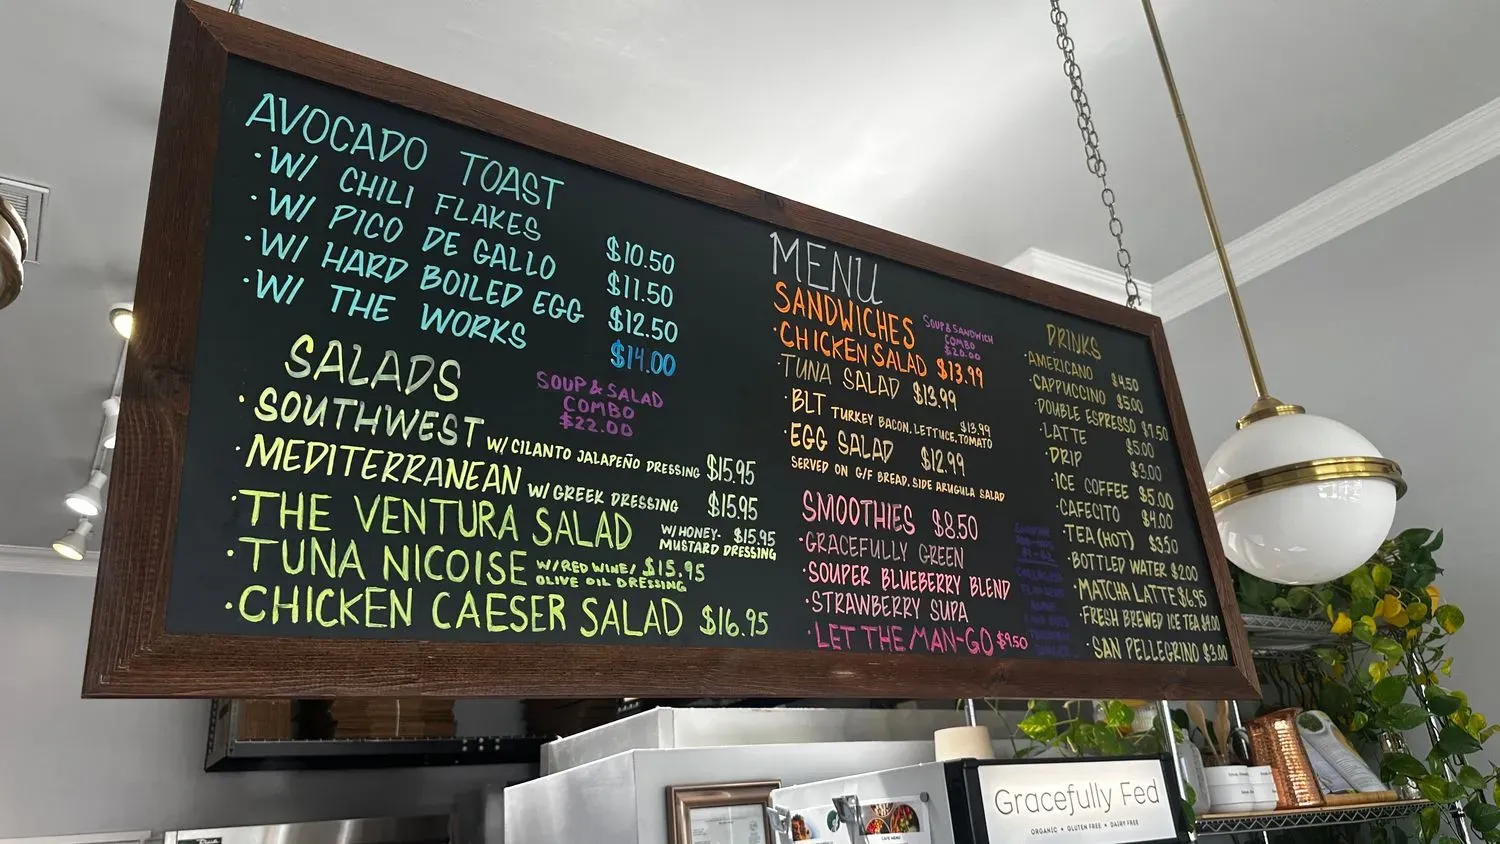 AVOCADO TOAST
· W/ CHILI FLAKES $10.50
· W/ PICO DE GALLO $11.50
· W/ HARD BOILED EGG $12.50
· W/ THE WORKS $14.00
SALADS
SOUP & SALAD
COMBO
$22.00
· SOUTHWEST W/ CILANTO JALAPEÑO DRESSING $15.95
· MEDITERRANEAN W/ GREEK DRESSING $15.95
· THE VENTURA SALAD W/ HONEY- $15.95
MUSTARD DRESSING
· TUNA NICOISE W/ RED WINE/ $15.95
OLIVE OIL DRESSING
· CHICKEN CAESER SALAD $16.95
MENU
SANDWICHES
SOUP & SANDWICH
COMBO
$20.00
· CHICKEN SALAD $13.99
· TUNA SALAD $13.99
· BLT TURKEY BACON, LETTUCE, TOMATO $13.99
· EGG SALAD $12.99
SERVED ON G/F BREAD. SIDE ARUGULA SALAD
SMOOTHIES $8.50
· GRACEFULLY GREEN
· SOUPER BLUEBERRY BLEND
· STRAWBERRY SUPA
· LET THE MAN-GO $9.50
DRINKS
· AMERICANO $4.50
· CAPPUCCINO $5.00
· DOUBLE ESPRESSO $7.50
· LATTE $5.00
· DRIP $3.00
· ICE COFFEE $5.00
· CAFECITO $4.00
· TEA (HOT) $3.50
· BOTTLED WATER $2.00
· MATCHA LATTE $6.95
· FRESH BREWED ICE TEA $4.00
· SAN PELLEGRINO $3.00
Gracefully Fed
ORGANIC • GLUTEN FREE • DAIRY FREE